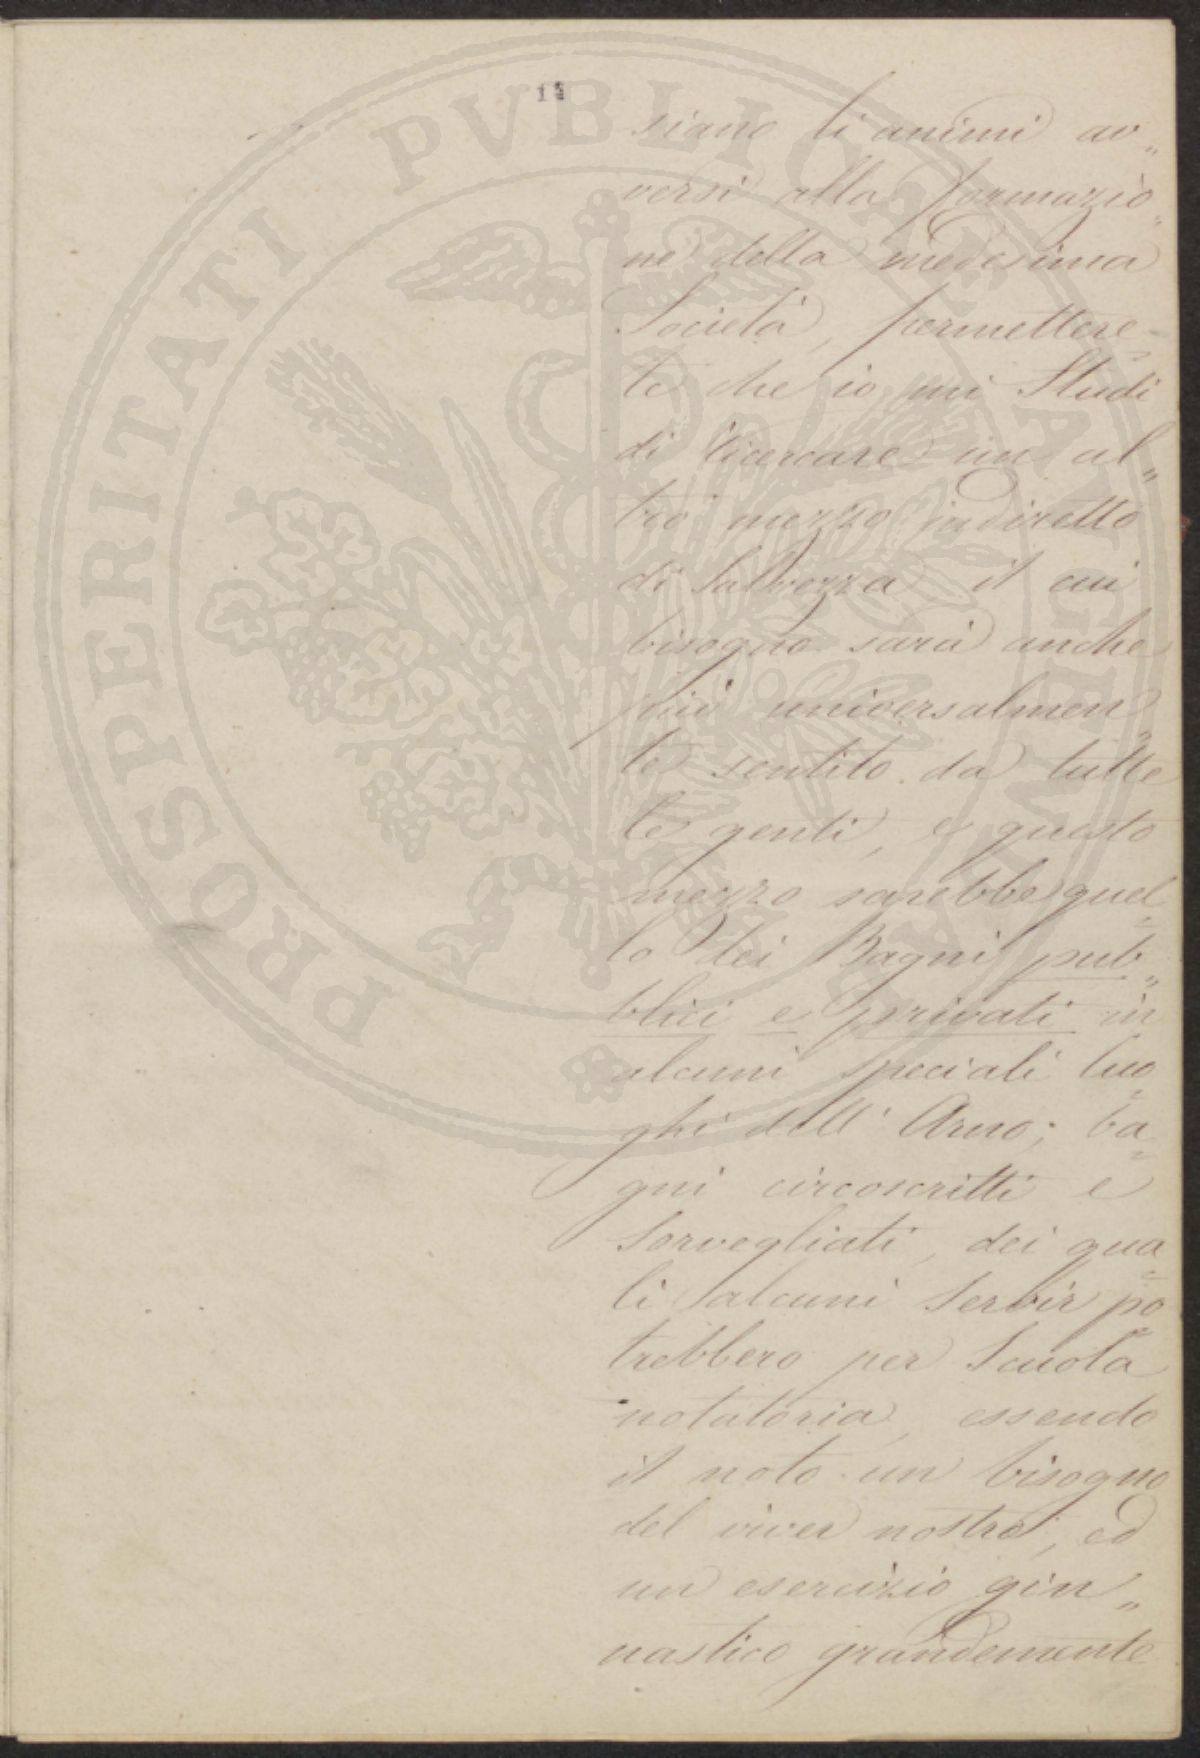 siano li animi av„
versi alla formazio„
ne della medesima
Società, permettere=
te che io mi Studi
di ricercare un al„
tro mezzo indiretto
di Salvezza il cui
bisogno sarà anche
più universalmen„
te sentito da tutte
le genti, e questo
mezzo sarebbe quel=
lo dei Bagni pub„
blici e privati in
alcuni speciali luo=
ghi dell' Arno; ba=
gni circoscritti e
Sorvegliati, dei qua=
li alcuni Servir po=
trebbero per Scuola
notatoria, essendo
il noto un bisogno
del viver nostro, ed
un esercizio gin„
nastico grandemente
PROSPERITATI PVBLICAE AVGENDAE